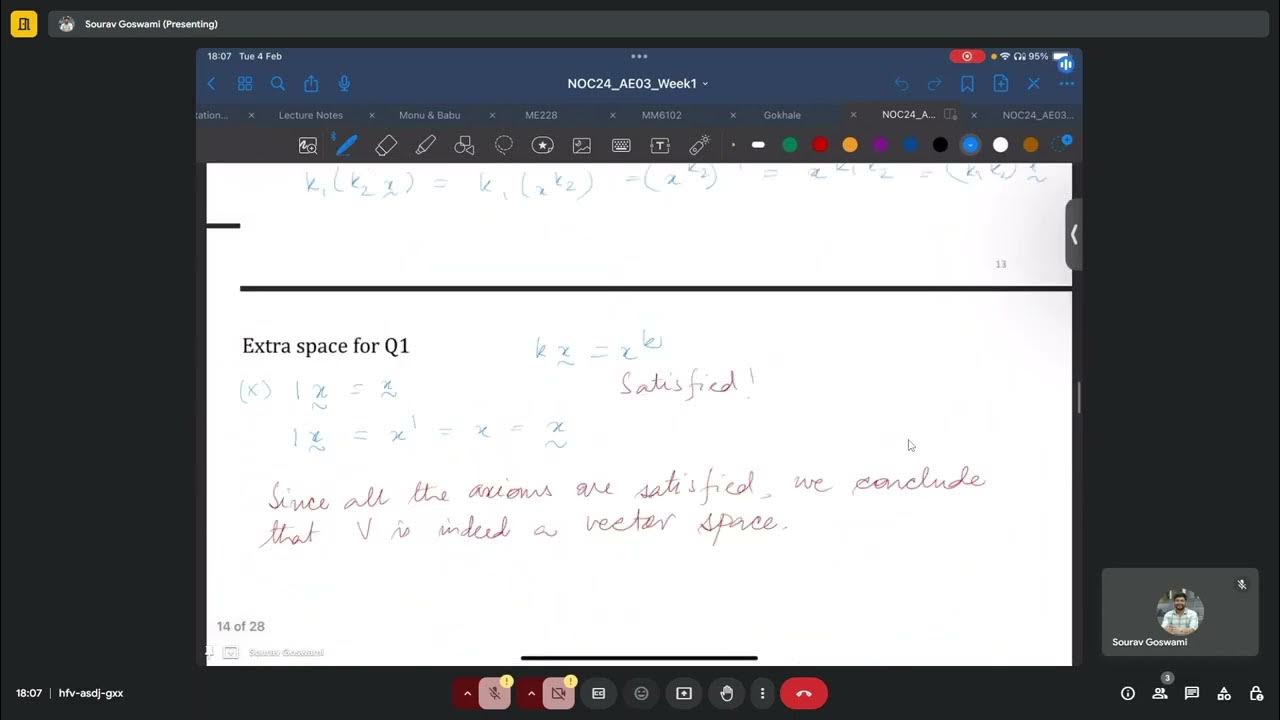 Sourav Goswami (Presenting)
18:07 Tue 4 Feb
95%
NOC24_AE03_Week1
tation...
Lecture Notes
Monu & Babu
ME228
MM6102
Gokhale
NOC24_A...
NOC24_AE03...
k₁(k₂ x) = k₁(x^k₂) = (x^k₂) = x^k₁k₂ = (k₁k₂) x
13
Extra space for Q1
k x = x^k
(X) 1 x = x
Satisfied!
1 x = x¹ = x = x
Since all the axioms are satisfied, we conclude
that V is indeed a vector space.
14 of 28
Sourav Goswami
Sourav Goswami
3
18:07 | hfv-asdj-gxx